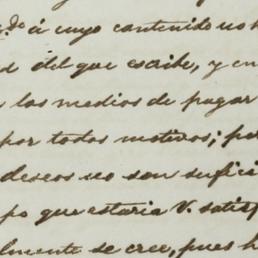 á cuyo contenido no h
d del que escribe, y en
los medios de pagar
por todos motivos; pe
deseos no son sufici
po que estaria V. satis
lmente se cree, pues h